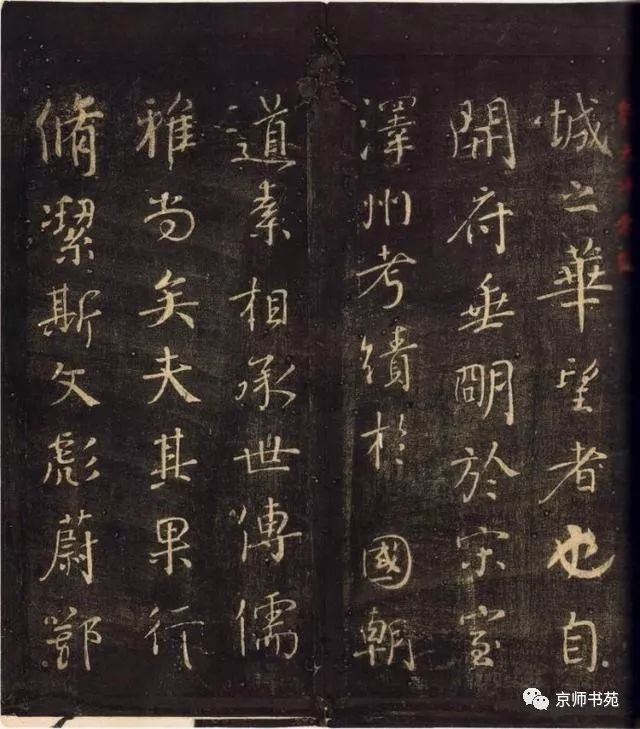 城之華望者也自
開府垂明於宋室
澤州考績於國朝
道素相承世傳儒
雅尚矣夫其果行
脩潔斯文彪蔚鄧
京师书苑